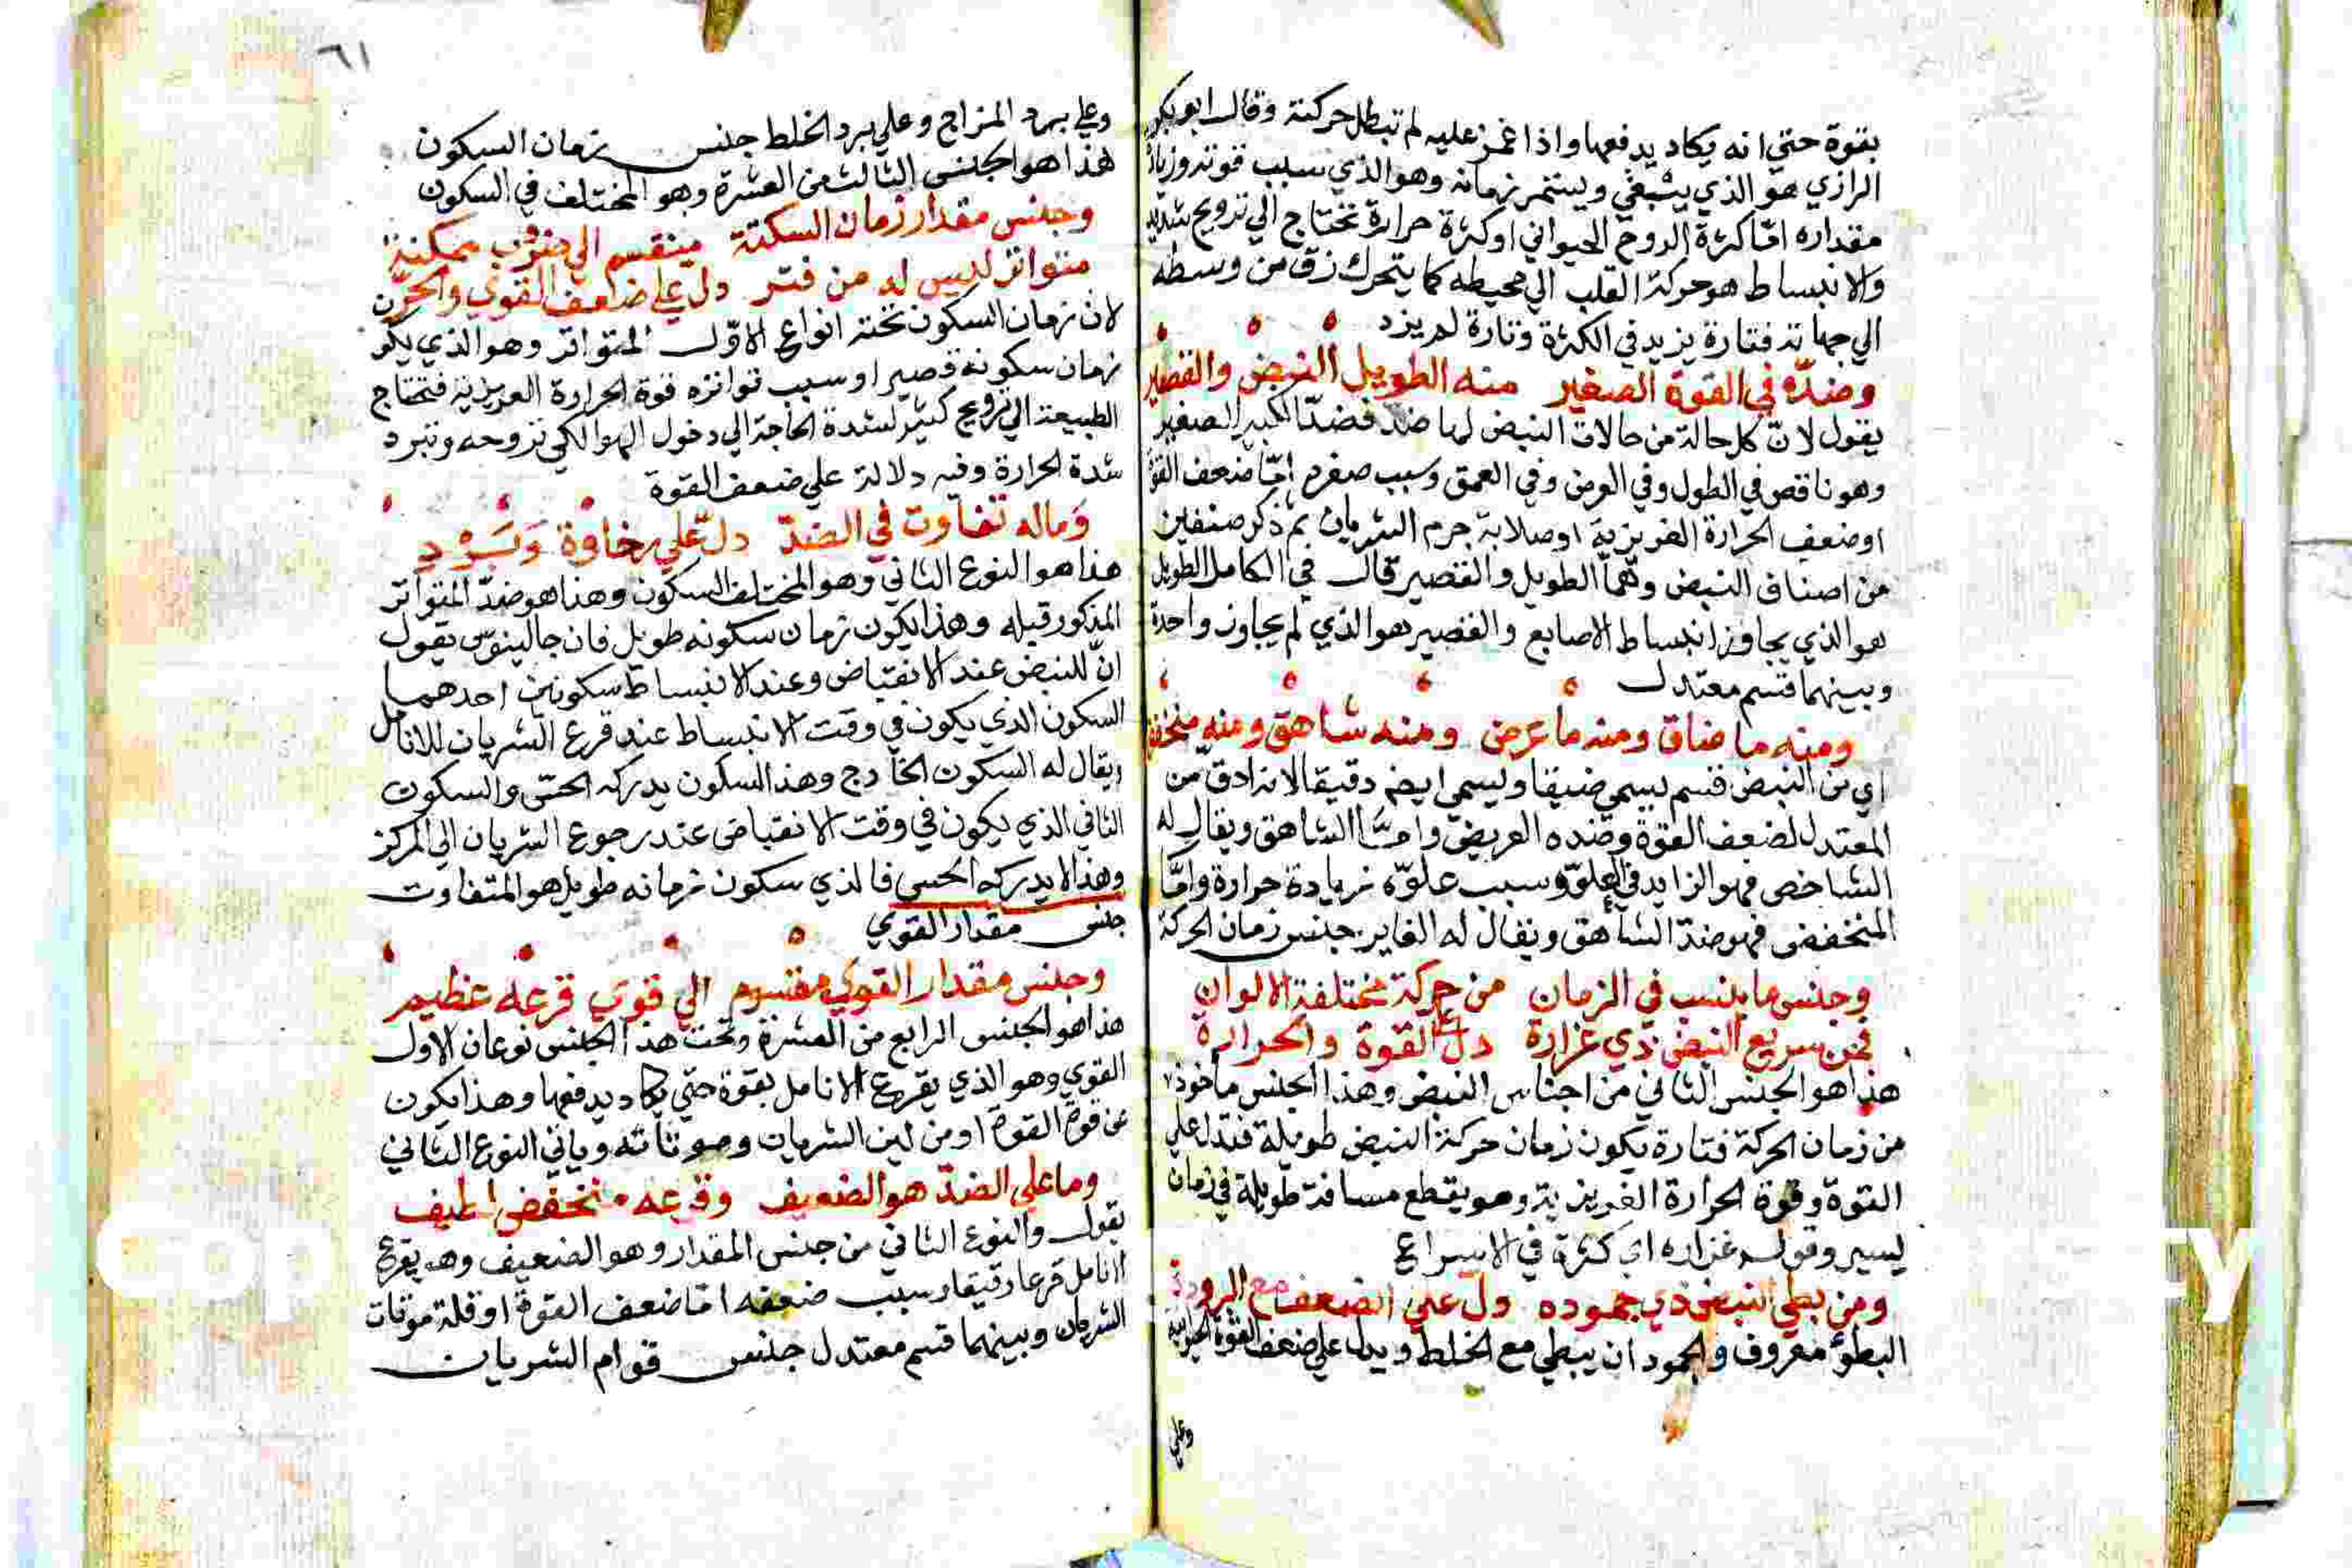 بقوة حتي انه يكاد يدفعها واذا غمز عليه لم تبطل حركته وقال ابو بكر
الرازي هو الذي ينبغي ويستتم زمانه وهو الذي سبب قوته وزيادة
مقداره امّا كثرة الروح الحيواني او كثرة حرارة تحتاج الي ترويح شديد
والانبساط هو حركة القلب الي محيطه كما يتحرك زق من وسطه
الي جهاته فتارة يزيد في الكثرة وتارة لم يزد
وضدّه في القوة الصغير منه الطويل النبض والقصير
يقول لانّ كل حالة من حالات النبض لها ضد فضدّ الكبير الصغير
وهو ناقص في الطول وفي العرض وفي العمق وسبب صغره امّا ضعف القوة
او ضعف الحرارة الغريزية او صلابة جرم الشريان ثم ذكر صنفين
من اصناف النبض وهما الطويل والقصير قال في الكامل الطويل
هو الذي يجاوز انبساط الاصابع والقصير هو الذي لم يجاوز واحدة
وبينهما قسم معتدل
ومنه ما ضاق ومنه ما عرض ومنه شاهق ومنه منخفض
اي من النبض قسم يسمي ضيقا ويسمي ايضا دقيقا لانه ادق من
المعتدل لضعف القوة وضده العريض وامّا الشاهق ويقال له
الشاخص فهو الزايد في العلوّ وسبب علوّه زيادة حرارة وامّا
المنخفض فهو ضدّ الشاهق ويقال له الغاير جنس زمان الحركة
وجنس ما ينسب في الزمان من حركة مختلفة الالوان
فمن سريع النبض ذي غزارة دل علي القوة والحرارة
هذا هو الجنس الثاني من اجناس النبض وهذا الجنس ماخوذ
من زمان الحركة فتارة يكون زمان حركة النبض طويلة فتدل علي
القوة وقوة الحرارة الغريزية وهو يقطع مسافة طويلة في زمان
يسير وقوله غزاره اي كثرة في الاسراع
ومن بطي النبض ذي جموده دل علي الضعف مع البرودة
البطؤ معروف والجمود ان يبطي مع الخلط ويدل علي ضعف القوة الحيوانية
وعلي
٦١
وعلي برد المزاج وعلي برد الخلط جنس زمان السكون
هذا هو الجنس الثالث من العشرة وهو المختلف في السكون
وجنس مقدار زمان السكتة ينقسم الي ضروب ممكنة
متواتر ليس له من فتر دل علي ضاعف القوي والحرّ
لان زمان السكون تحته انواع الاوّل المتواتر وهو الذي يكو
زمان سكونه قصيرا وسبب تواتره قوة الحرارة الغريزية فتحتاج
الطبيعة الي ترويح كثير لشدة الحاجة الي دخول الهوا لكي تروحه وتبرد
شدة الحرارة وفيه دلالة علي ضعف القوة
وماله تفاوت في الضدّ دلّ علي رخاوة وبَرْد
هذا هو النوع الثاني وهو المختلف السكون وهذا هو ضدّ المتواتر
المذكور قبله وهذا يكون زمان سكونه طويل فان جالينوس يقول
انّ للنبض عند الانقباض وعند الانبساط سكونين احدهما
السكون الذي يكون في وقت الانبساط عند قرع الشريان للانامل
ويقال له السكون الخارج وهذا السكون يدركه الحسّ والسكون
الثاني الذي يكون في وقت الانقباض عند رجوع الشريان الي المركز
وهذا لا يدركه الحس فالذي سكون زمانه طويل هو المتفاوت
جنس مقدار القوي
وجنس مقدار القوي مقسوم الي قوي قرعه عظيم
هذا هو الجنس الرابع من العشرة وتحت هذا الجنس نوعان الاول
القوي وهو الذي يقرع الانامل بقوة حتي يكاد يدفعها وهذا يكون
عن قوة القوة او من لين الشريان وياتي النوع الثاني
وما علي الضدّ هو الضعيف وقرعه منخفض لطيف
يقول والنوع الثاني من جنس المقدار وهو الضعيف وهو يقرع
الانامل قرعا رقيقا وسبب ضعفه امّا ضعف القوة او قلة
الشريان وبينهما قسم معتدل جنس قوام الشريان